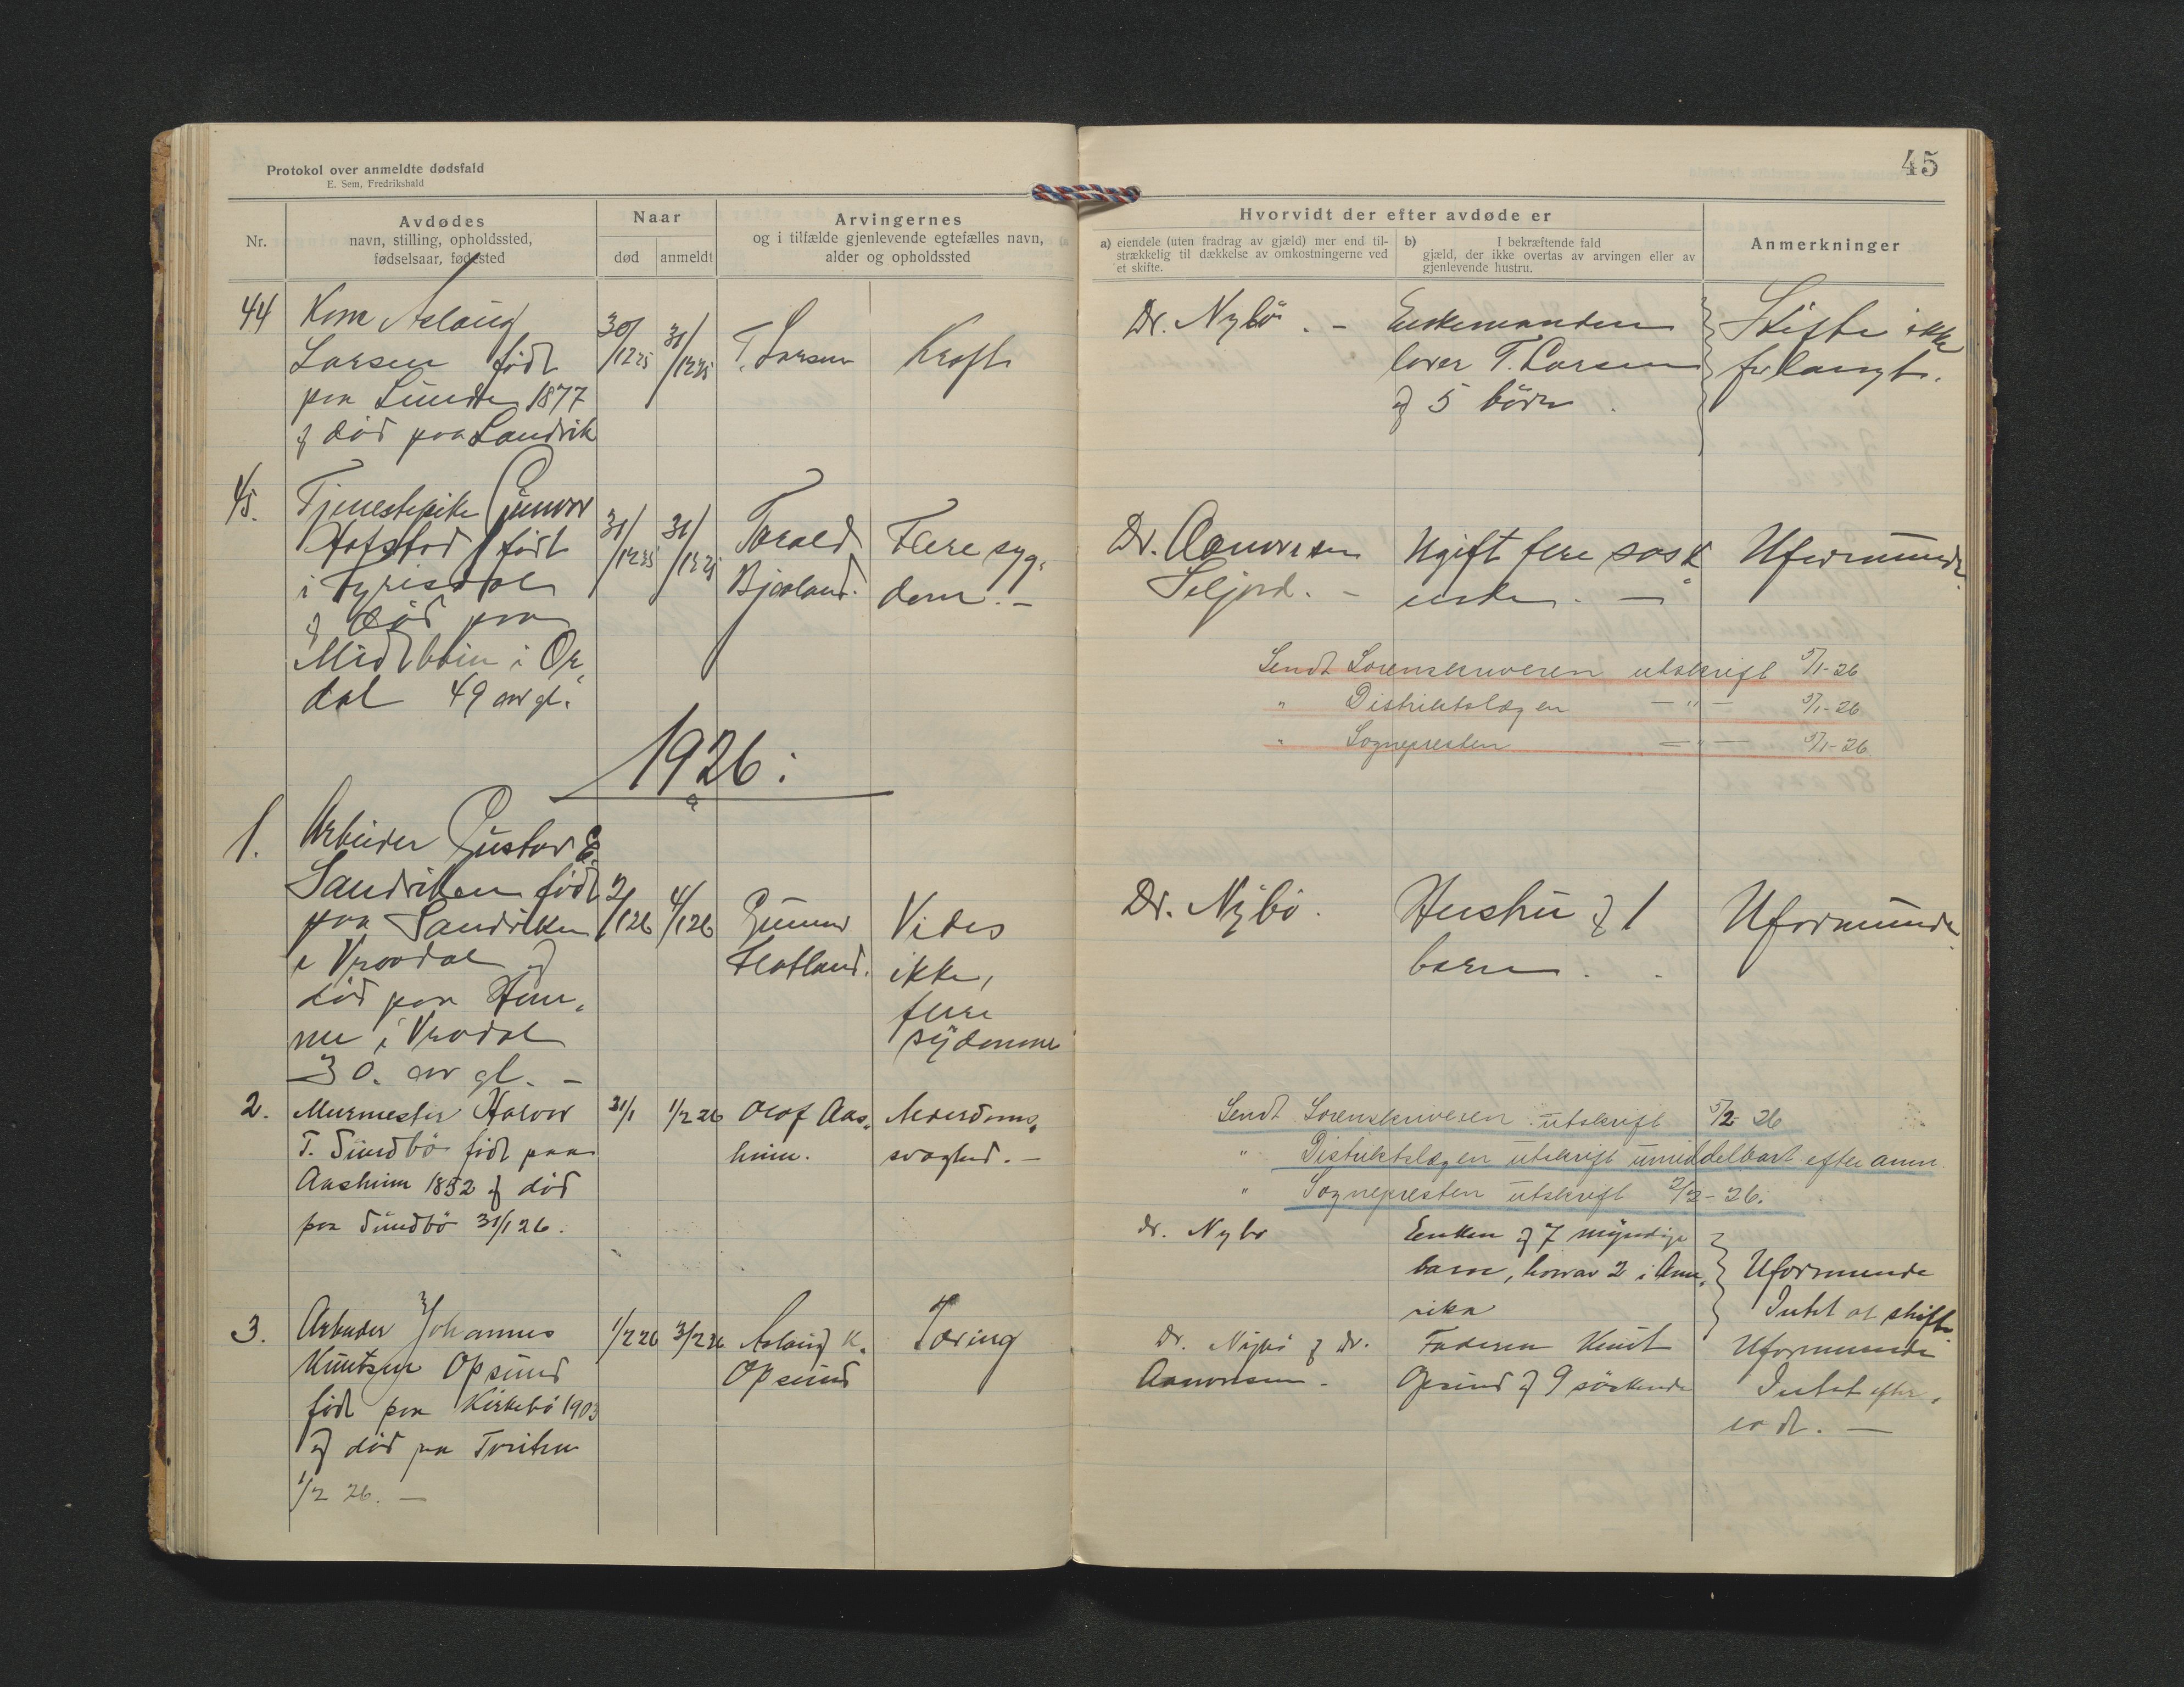 Protokol over anmeldte dødsfald
E. Sem, Fredrikshald
45
Nr.
Avdødes
navn, stilling, opholdssted,
fødselsaar, fødested
Naar
død
anmeldt
Arvingernes
og i tilfælde gjenlevende egtefælles navn,
alder og opholdssted
Hvorvidt der efter avdøde er
a) eiendele (uten fradrag av gjæld) mer end til-
strækkelig til dækkelse av omkostningerne ved
et skifte.
b) I bekræftende fald
gjæld, der ikke overtas av arvingen eller av
gjenlevende hustru.
Anmerkninger
44
Kone Aslaug
Larsen født
paa Lunden 1877
og død paa Sandvik
30/12 25
31/12 25
T. Larsen
Kreft
Dr. Nybö. -
Enkemanden
lever T. Larsen
og 5 börn.
Skifte ikke
forlangt.
45.
Tjenestepike Gunvor
Hofstad født
i Fyrisdal
og död paa
Midtböin i Or,
dal 49 aar gl.
31/12 25
31/12 25
Torald
Bjaaland.
Flere syg,
dom. -
Dr. Aanonsen
Seljord. -
Ugift flere søsk
ende. -
Uformuende
Sendt Sorenskriveren utskrift 5/1-26
" Distriktslægen - " - 5/1-26
" Sognepresten - " - 5/1-26
1926:
1.
Arbeider Gustav E.
Sandviken födt
paa Sandviken
i Vraadal og
död paa Hem,
me i Vradal
30. aar gl. -
2/1 26
4/1 26
Gunnar
Flatland.
Vides
ikke,
flere
sydomme
Dr. Nybö.
Hustru og 1
barn.
Uformuende
2.
Murmester Halvor
T. Sundbö födt paa
Aasheim 1852 og död
paa Sundbö 31/1 26.
31/1
1/2 26
Olaf Aas,
heim.
Alderdoms,
svaghed. -
Sendt Sorenskriveren utskrift 5/2-26
" Distriktslægen utskrift umiddelbart efter anm.
" Sognepresten utskrift 2/2-26.
dr. Nybö
Enken og 7 myndige
barn, hvorav 2 i Ame,
rika
Uformuende
Intet at skifte
3.
Arbeider Johannes
Knutsen Opsund
födt paa Kirkebö 1903
og död paa Tveiten
1/2 26. -
1/2 26
3/2 26
Aslaug K.
Opsund
Tæring
Dr. Nybö og dr.
Aanonsen -
Faderen Knut
Opsund og 9 söskende
Uformuende
Intet efter,
ladt. -